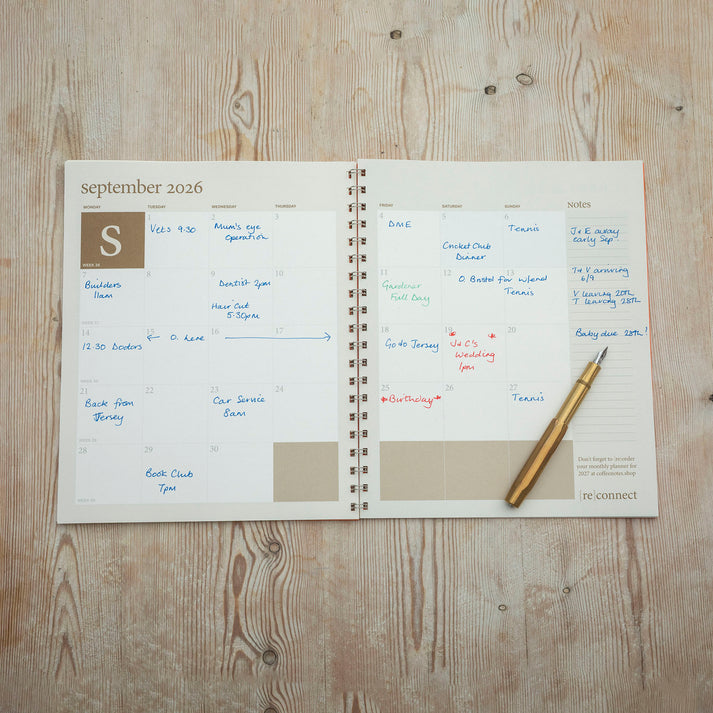 september 2026
MONDAY TUESDAY WEDNESDAY THURSDAY
S
WEEK 36
1 2 3
Vets 9:30
Mum's eye
operation
7 8 9 10
Builders
11am
Dentist 2pm
Hair Cut
5.30pm
WEEK 37
14 15 16 17
12.30 Doctors
O. here
21 22 23 24
Back from
Jersey
Car Service
8am
28 29 30
Book Club
7pm
FRIDAY SATURDAY SUNDAY
4 5 6
DME
Cricket Club
Dinner
Tennis
11 12 13
Gardener
Full Day
O. Bristol for w/end
Tennis
18 19 20
Go to Jersey
J & C's
Wedding
1pm
25 26 27
Birthday
Tennis
Notes
J & E away
early Sep.
T & V arriving
6/9
V leaving 20th
T leaving 28th
Baby due 28th!
Don't forget to re-order
your monthly planner for
2027 at coffeenotes.shop
[re]connect